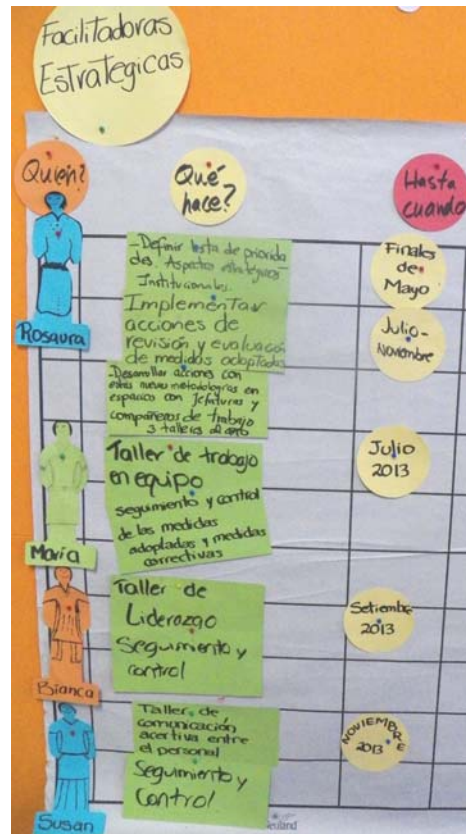 Facilitadoras
Estrategicas
Quién?
Qué
hace?
Hasta
cuando
Rosaura
-Definir lista de priorida
des. Aspectos estratégicos
Institucionales.
Implementar
acciones de
revisión y evaluación
de medidas adoptadas
-Desarrollar acciones con
estas nuevas metodologías en
espacio con Jefaturas y
compañeros de trabajo
3 talleres al año
Finales
de
Mayo
Julio-
Noviembre
María
Taller de trabajo
en equipo
seguimiento y control
de las medidas
adoptadas y medidas
correctivas
Julio
2013
Bianca
Taller de
Liderazgo
Seguimiento y
control
Setiembre
2013
Susan
Taller de
comunicación
acertiva entre
el personal
Seguimiento y
Control
NOVIEMBRE
2013